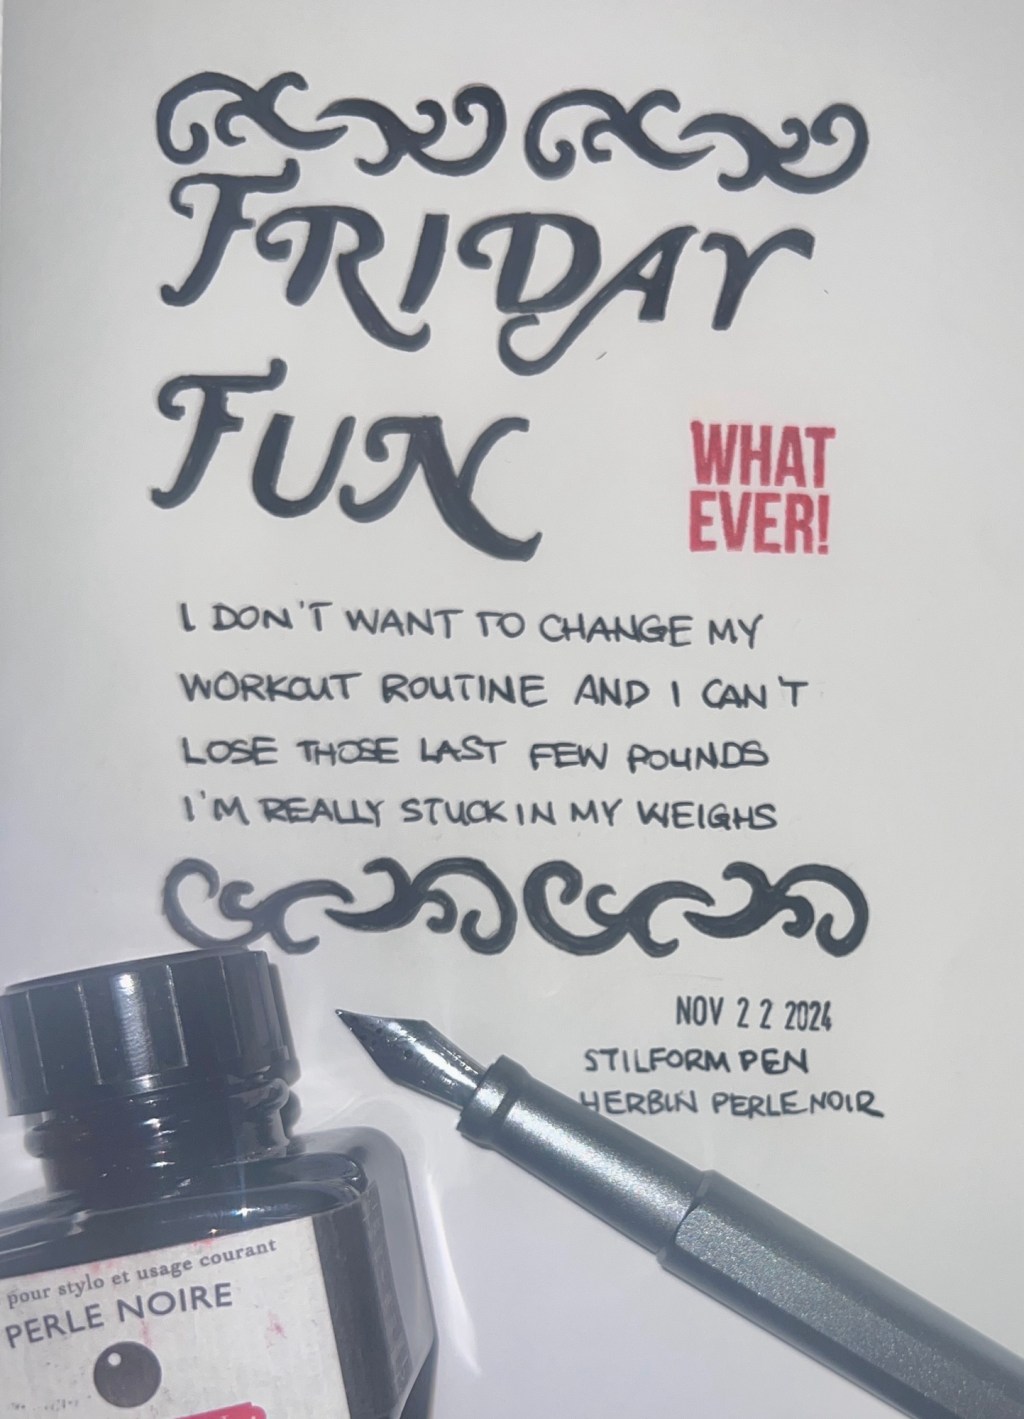 FRIDAY
FUN
WHAT
EVER!
I DON'T WANT TO CHANGE MY
WORKOUT ROUTINE AND I CAN'T
LOSE THOSE LAST FEW POUNDS
I'M REALLY STUCK IN MY WEIGHS
NOV 22 2024
STILFORM PEN
HERBIN PERLE NOIR
pour stylo et usage courant
PERLE NOIRE